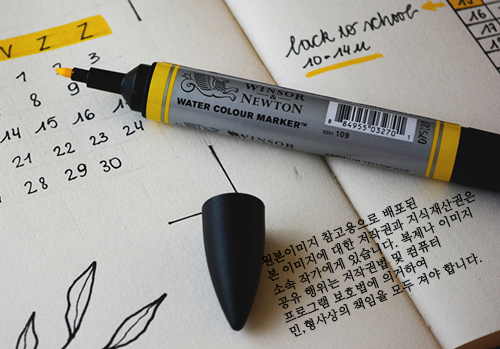 V Z Z
1 2 3
8 9
14 15 16 17
21 22 23 24
28 29 30
back to school
10-14 u
15
16
17
18
WINSOR
&
NEWTON
WATER COLOUR MARKER™
WINSOR
8 84955 03270 1
109
원본이미지 참고용으로 배포된
본 이미지에 대한 저작권과 지식재산권은
소속 작가에게 있습니다. 복제나 이미지
공유 행위는 저작권법 및 컴퓨터
프로그램 보호법에 의거하여
민.형사상의 책임을 모두 져야 합니다.